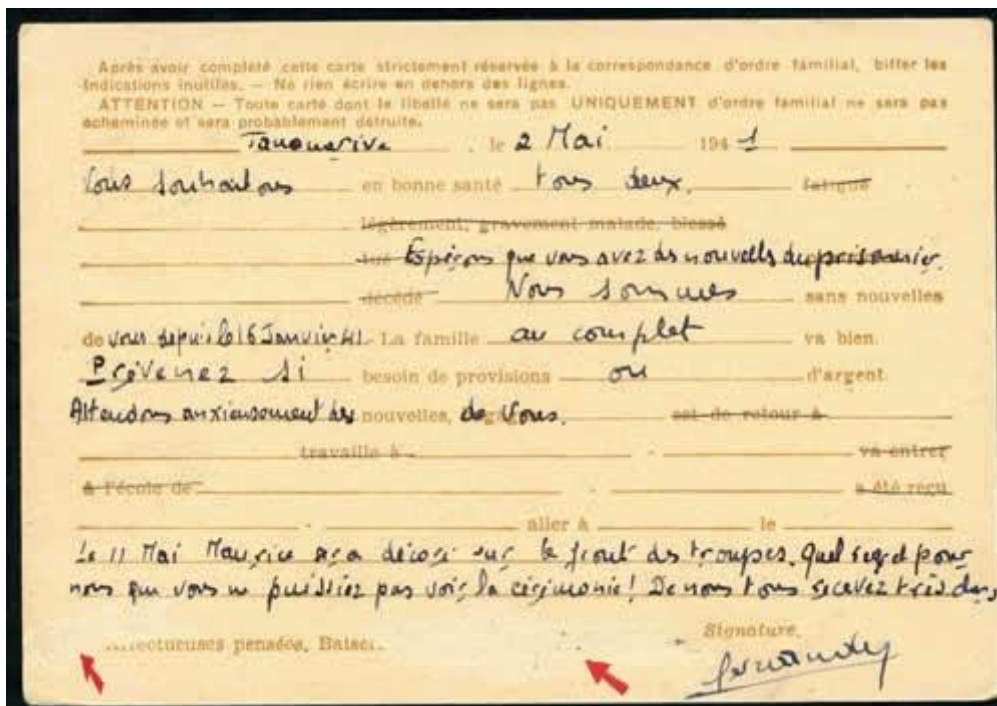 Après avoir complété cette carte strictement réservée à la correspondance d'ordre familial, biffer les
indications inutiles. — Ne rien écrire en dehors des lignes.
ATTENTION — Toute carte dont le libellé ne sera pas UNIQUEMENT d'ordre familial ne sera pas
acheminée et sera probablement détruite.
Tananarive, le 2 Mai 1941
Vous souhaitons en bonne santé tous deux. fatigué
légèrement, gravement malade, blessé
tué Espérons que vous avez des nouvelles du prisonnier.
décédé Nous sommes sans nouvelles
de vous depuis le 16 Janvier 41. La famille au complet va bien.
Prévenez si besoin de provisions ou d'argent.
Attendons anxieusement des nouvelles, de Vous. est de retour à
travaille à va entrer
à l'école de a été reçu
aller à le
Le 11 Mai Maurice sera décoré sur le front des troupes. Quel regret pour
nous que vous ne puissiez pas voir la cérémonie! De nous tous recevez très
pensées, Baiser
Signature.